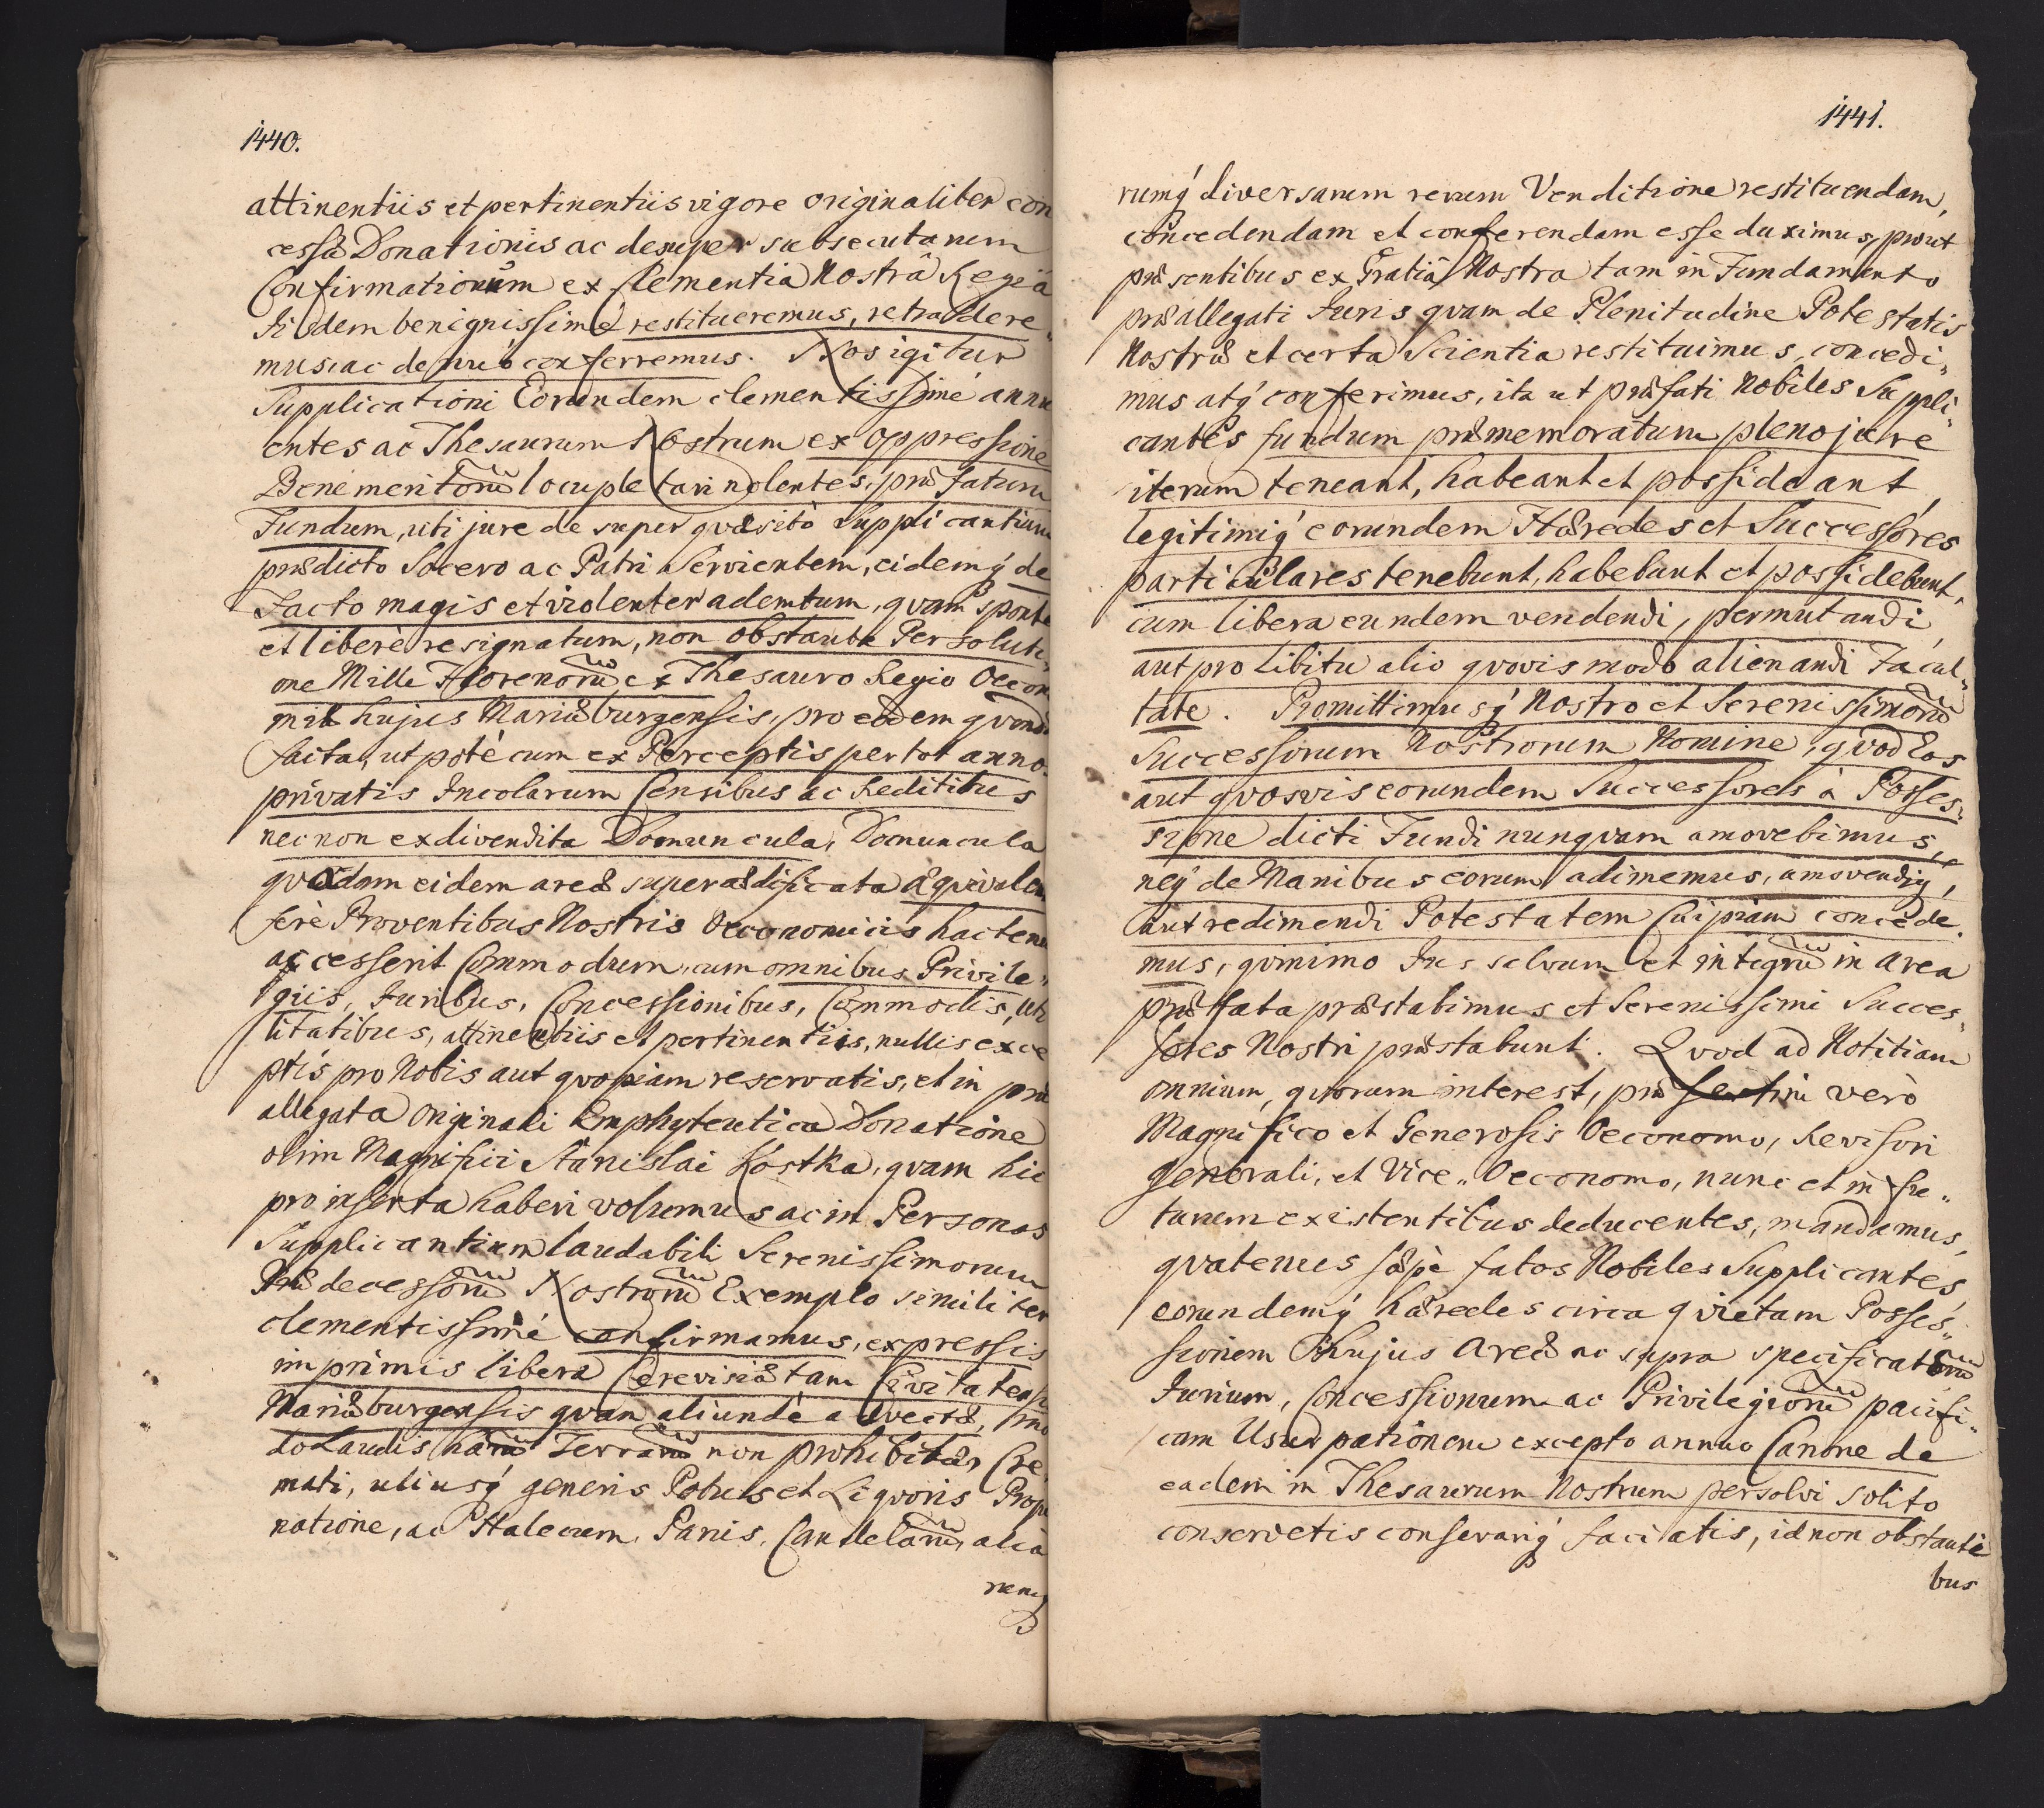 1440.
attinentiis et pertinentiis vigore originaliter con
cessæ Donationis ac desuper subsecutarum
Confirmationum ex Clementia Nostrâ Regiâ
Iisdem benignissimè restitueremus, retradere„
mus ac denuò conferremus. Nos igitur
Supplicationi Eorundem clementissimè annu
entes ac Thesaurum Nostrum ex oppressione
Benemeritorũ locupletari nolentes, præfatum
Fundum, uti jure desuper quæsitò Supplicantium
prædicto Socero ac Patri Servientem, eidemq́ de
Facto magis et violenter ademtum, qvam sponte
et liberè resignatum, non obstante Persoluti„
one Mille Florenorũ ex Thesauro Regio Oecon
miæ hujus Mariæburgensis, pro eodem qvond
facta, ut potè cum ex Perceptis per tot anno
privatis Incolarum Censibus ac Reditibus
nec non ex divendita Domuncula, Domuncula
qvadam eidem areæ superædificata æquivalen
ferè Proventibus Nostris Oeconomiis hactenu
accesserit Commodum, cum omnibus Privile„
giis, Juribus, Concessionibus, Commodis, uti
litatibus, attinentiis et pertinentiis, nullis exce
ptis pro Nobis aut qvopiam reservatis, et in præ
allegata Originali Emphyteutica Donatione
olim Magnifici Stanislai Kostka, qvam hic
pro inserta haberi volumus ac in Personas
Supplicantium laudabili Serenissimorum
Prædecessorũ Nostrorũ Exemplo similiter
clementissimè confirmamus, expressis
imprimis libera Cerevisiæ tam Civitatens
Mariæburgensis qvam aliundè advectæ,
do Laudis harũ Terrarũ non prohibitæ, Cre„
mati, uliusq́ generis Potus et Liqvoris Propi
natione, ac Halecum, Panis, Candelarũ, alia
rumq́
1441.
rumq́ diversarum rerum Venditione restituendam,
concedendam et conferendam esse duximus, prout
præsentibus ex Gratiâ Nostra tam in Fundamento
præallegati Juris qvam de Plenitudine Potestatis
Nostræ et certa Scientia restituimus, concedi„
mus atq́ conferimus, ita ut præfati Nobiles Suppli„
cantes fundum præmemoratum pleno jure
iterum teneant, habeant et possideant
legitimiq́ eorundem Hæredes et Successores
particulares tenebunt, habebunt et possidebunt,
cum libera eundem vendendi, permutandi,
aut pro Libitu alio qvovis modo alienandi Facul„
tate. Promittimusq́ Nostro et Serenissimorũ
Successorum Nostrorum Nomine, qvod Eos
aut qvosvis eorundem Successores à Posses„
sione dicti Fundi nunqvam amovebimus,
neq́ de Manibus eorum adimemus, amovendiq́,
aut redimendi Potestatem Cuipiam concede„
mus, qvinimo Jus salvum et integrũ in area
præfata præstabimus et Serenissimi Succes„
sores Nostri præstabunt. Qvod ad Notitiam
omnium, qvorum interest, præsertim verò
Magnifico et Generosis Oeconomo, Revisori
generali, et Vice„ Oeconomo, nunc et in fu„
turum existentibus deducentes, mandamus,
qvatenus sæpè fatos Nobiles Supplicantes,
eorundemq́ hæredes circa qvietam Posses„
sionem hujus Areæ ac supra specificatorũ
Jurium, Concessionum ac Privilegiorũ pacifi„
cam Usurpationem excepto annuo Canone de
eadem in Thesaurum Nostrum persolvi solito
conservetis conservariq́ faciatis, id non obstanti
bus